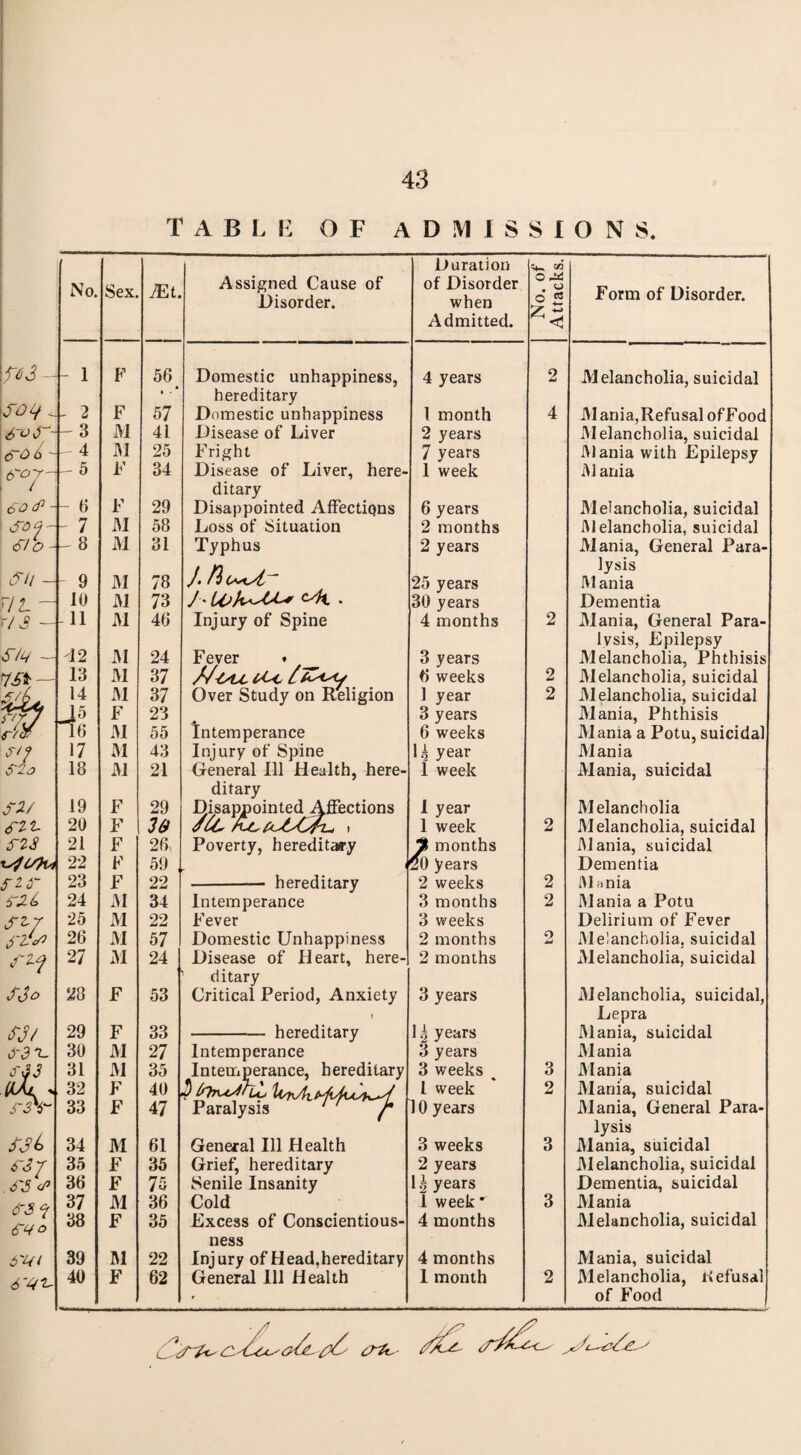 43
TABLE OF ADMISSIONS.
No. Sex. Æt. Assigned Cause of Disorder. Duration of Disorder when Admitted. No. of Attacks. Form of Disorder.
503 - 1 F 56 Domestic unhappiness, 4 years 2 Melancholia, suicidal
hereditary
504 - 2 F 57 Domestic unhappiness 1 month 4 Mania, Refusal of Food
505 - 3 M 41 Disease of Liver 2 years Melancholia, suicidal
506 - 4 M 25 Fright 7 years Mania with Epilepsy
507 - 5 F 34 Disease of Liver, here- 1 week Mania
ditary
508 - 6 F 29 Disappointed Affections 6 years Melancholia, suicidal
509 - 7 M 58 Loss of Situation 2 months Melancholia, suicidal
510 - 8 M 31 Typhus 2 years Mania, General Para-
lysis
511 - 9 M 78 25 years Mania
512 - 10 M 73 30 years Dementia
513 - 11 M 46 Injury of Spine 4 months 2 Mania, General Para-
lysis, Epilepsy
514 - 12 M 24 Fever 3 years Melancholia, Phthisis
13 M 37 6 weeks 2 Melancholia, suicidal
14 M 37 Over Study on Religion 1 year 2 Melancholia, suicidal
15 F 23 3 years Mania, Phthisis
16 M 55 Intemperance 6 weeks Mania a Potu, suicidal
519 17 M 43 Injury of Spine 1½ year Mania
520 18 M 21 General Ill Health, here- 1 week Mania, suicidal
ditary
521 19 F 29 Disappointed Affections 1 year Melancholia
522 20 F 30 1 week 2 Melancholia, suicidal
523 21 F 26 Poverty, hereditary 7 months Mania, suicidal
22 F 59 20 years Dementia
525 23 F 22 ——— hereditary 2 weeks 2 Mania
526 24 M 34 Intemperance 3 months 2 Mania a Potu
527 25 M 22 Fever 3 weeks Delirium of Fever
528 26 M 57 Domestic Unhappiness 2 months 2 Melancholia, suicidal
529 27 M 24 Disease of Heart, here- 2 months Melancholia, suicidal
ditary
530 28 F 53 Critical Period, Anxiety 3 years Melancholia, suicidal,
Lepra
531 29 F 33 ——— hereditary 1½ years Mania, suicidal
532 30 M 27 Intemperance 3 years Mania
533 31 M 35 Intemperance, hereditary 3 weeks 3 Mania
32 F 40 1 week 2 Mania, suicidal
535 33 F 47 Paralysis 10 years Mania, General Para-
lysis
536 34 M 61 General Ill Health 3 weeks 3 Mania, suicidal
537 35 F 35 Grief, hereditary 2 years Melancholia, suicidal
538 36 F 75 Senile Insanity 1½ years Dementia, suicidal
539 37 M 36 Cold 1 week 3 Mania
540 38 F 35 Excess of Conscientious- 4 months Melancholia, suicidal
ness
541 39 M 22 Injury of Head, hereditary 4 months Mania, suicidal
542 40 F 62 General Ill Health 1 month 2 Melancholia, Refusal
of Food
Concluded on the other side